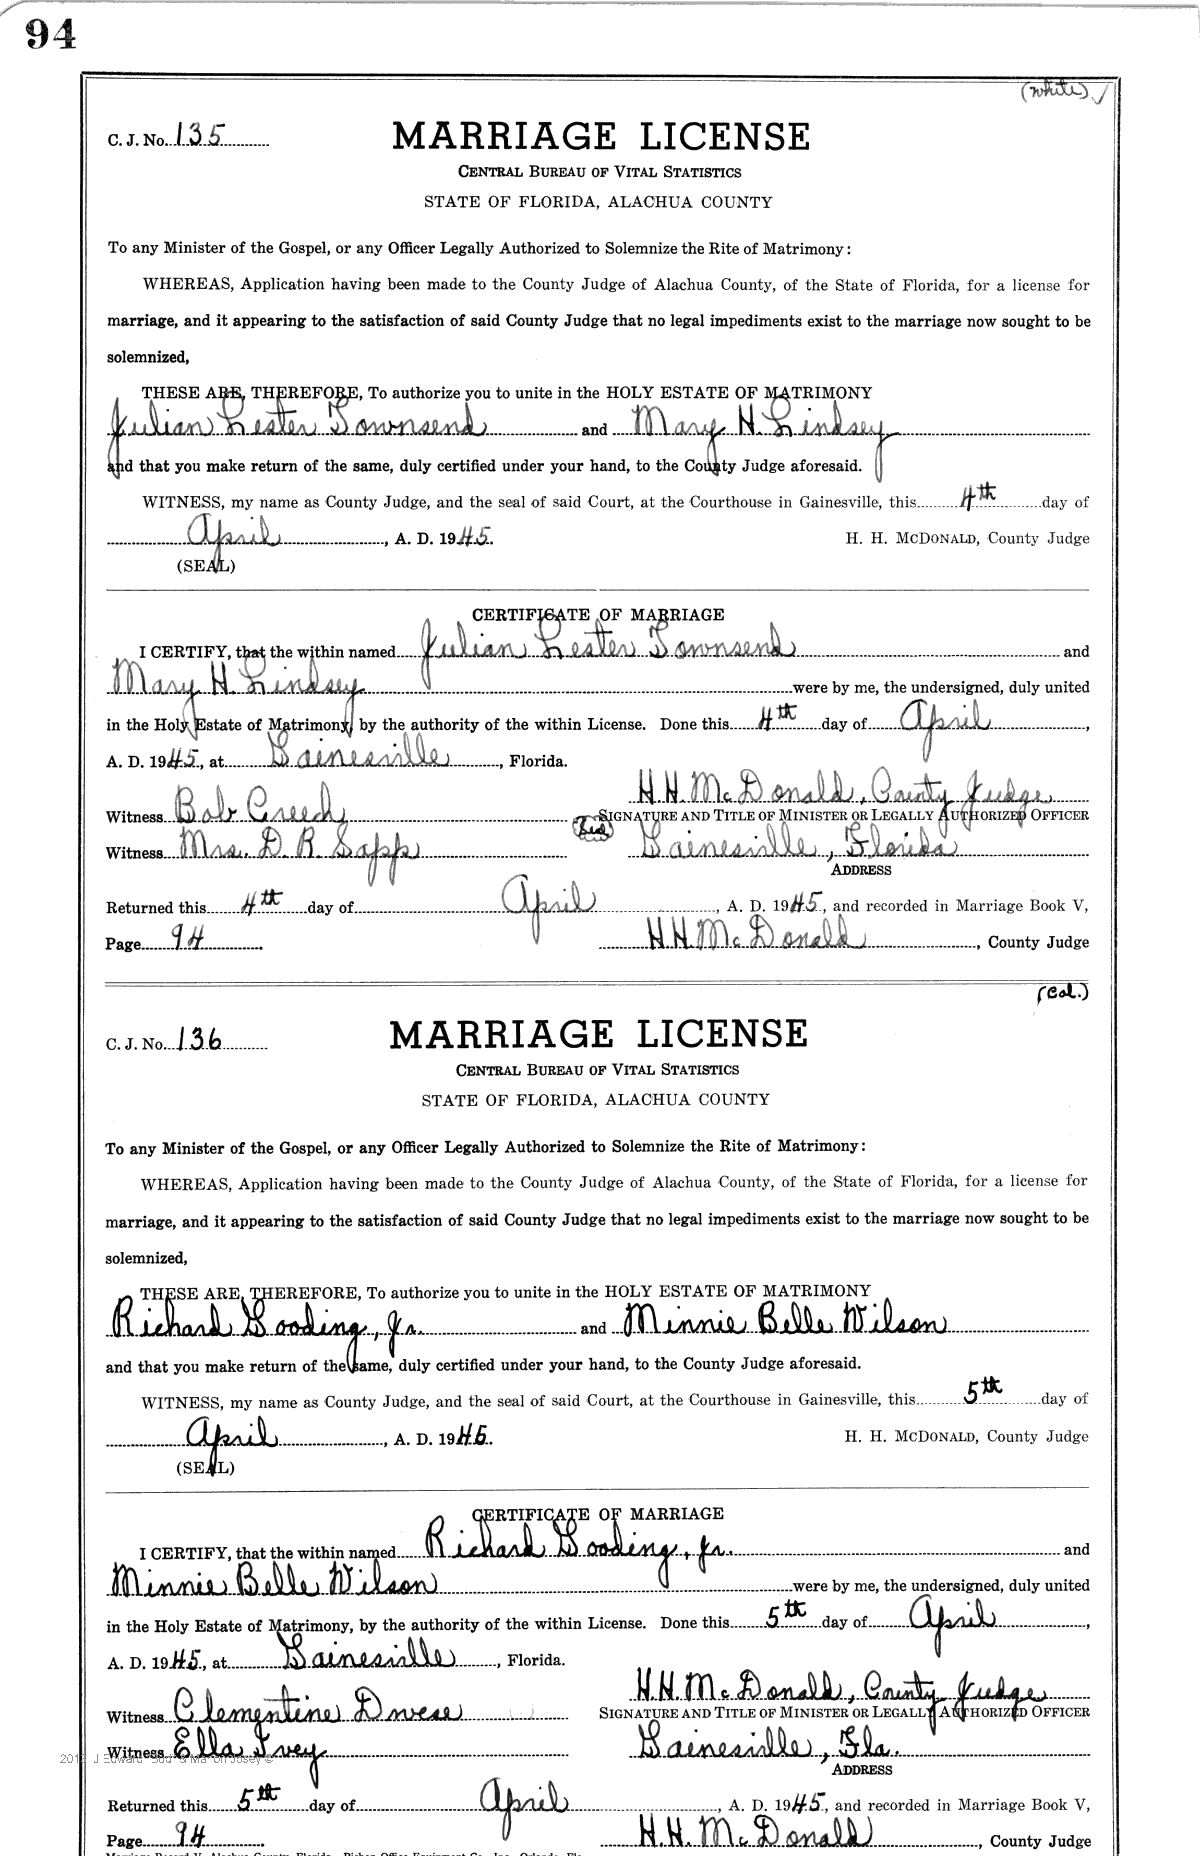 94
(white) ✓
C. J. No. 135
MARRIAGE LICENSE
CENTRAL BUREAU OF VITAL STATISTICS
STATE OF FLORIDA, ALACHUA COUNTY
To any Minister of the Gospel, or any Officer Legally Authorized to Solemnize the Rite of Matrimony:
WHEREAS, Application having been made to the County Judge of Alachua County, of the State of Florida, for a license for
marriage, and it appearing to the satisfaction of said County Judge that no legal impediments exist to the marriage now sought to be
solemnized,
THESE ARE, THEREFORE, To authorize you to unite in the HOLY ESTATE OF MATRIMONY
Julian Lester Townsend and Mary H. Lindsey
and that you make return of the same, duly certified under your hand, to the County Judge aforesaid.
WITNESS, my name as County Judge, and the seal of said Court, at the Courthouse in Gainesville, this 4th day of
April, A. D. 1945. H. H. MCDONALD, County Judge
(SEAL)
CERTIFICATE OF MARRIAGE
I CERTIFY, that the within named Julian Lester Townsend and
Mary H. Lindsey were by me, the undersigned, duly united
in the Holy Estate of Matrimony, by the authority of the within License. Done this 4th day of April,
A. D. 1945, at Gainesville, Florida.
H. H. McDonald, County Judge
Witness Bob Creech SIGNATURE AND TITLE OF MINISTER OR LEGALLY AUTHORIZED OFFICER
Witness Mrs. D. R. Sapp Gainesville, Florida
ADDRESS
Returned this 4th day of April, A. D. 1945, and recorded in Marriage Book V,
Page 94 H. H. McDonald, County Judge
(Col.)
C. J. No. 136
MARRIAGE LICENSE
CENTRAL BUREAU OF VITAL STATISTICS
STATE OF FLORIDA, ALACHUA COUNTY
To any Minister of the Gospel, or any Officer Legally Authorized to Solemnize the Rite of Matrimony:
WHEREAS, Application having been made to the County Judge of Alachua County, of the State of Florida, for a license for
marriage, and it appearing to the satisfaction of said County Judge that no legal impediments exist to the marriage now sought to be
solemnized,
THESE ARE, THEREFORE, To authorize you to unite in the HOLY ESTATE OF MATRIMONY
Richard Gooding, Jr. and Minnie Belle Wilson
and that you make return of the same, duly certified under your hand, to the County Judge aforesaid.
WITNESS, my name as County Judge, and the seal of said Court, at the Courthouse in Gainesville, this 5th day of
April, A. D. 1945. H. H. MCDONALD, County Judge
(SEAL)
CERTIFICATE OF MARRIAGE
I CERTIFY, that the within named Richard Gooding, Jr. and
Minnie Belle Wilson were by me, the undersigned, duly united
in the Holy Estate of Matrimony, by the authority of the within License. Done this 5th day of April,
A. D. 1945, at Gainesville, Florida.
H. H. McDonald, County Judge
Witness Clementine SIGNATURE AND TITLE OF MINISTER OR LEGALLY AUTHORIZED OFFICER
Witness Ella Ivey Gainesville, Fla.
ADDRESS
Returned this 5th day of April, A. D. 1945, and recorded in Marriage Book V,
Page 94 H. H. McDonald, County Judge